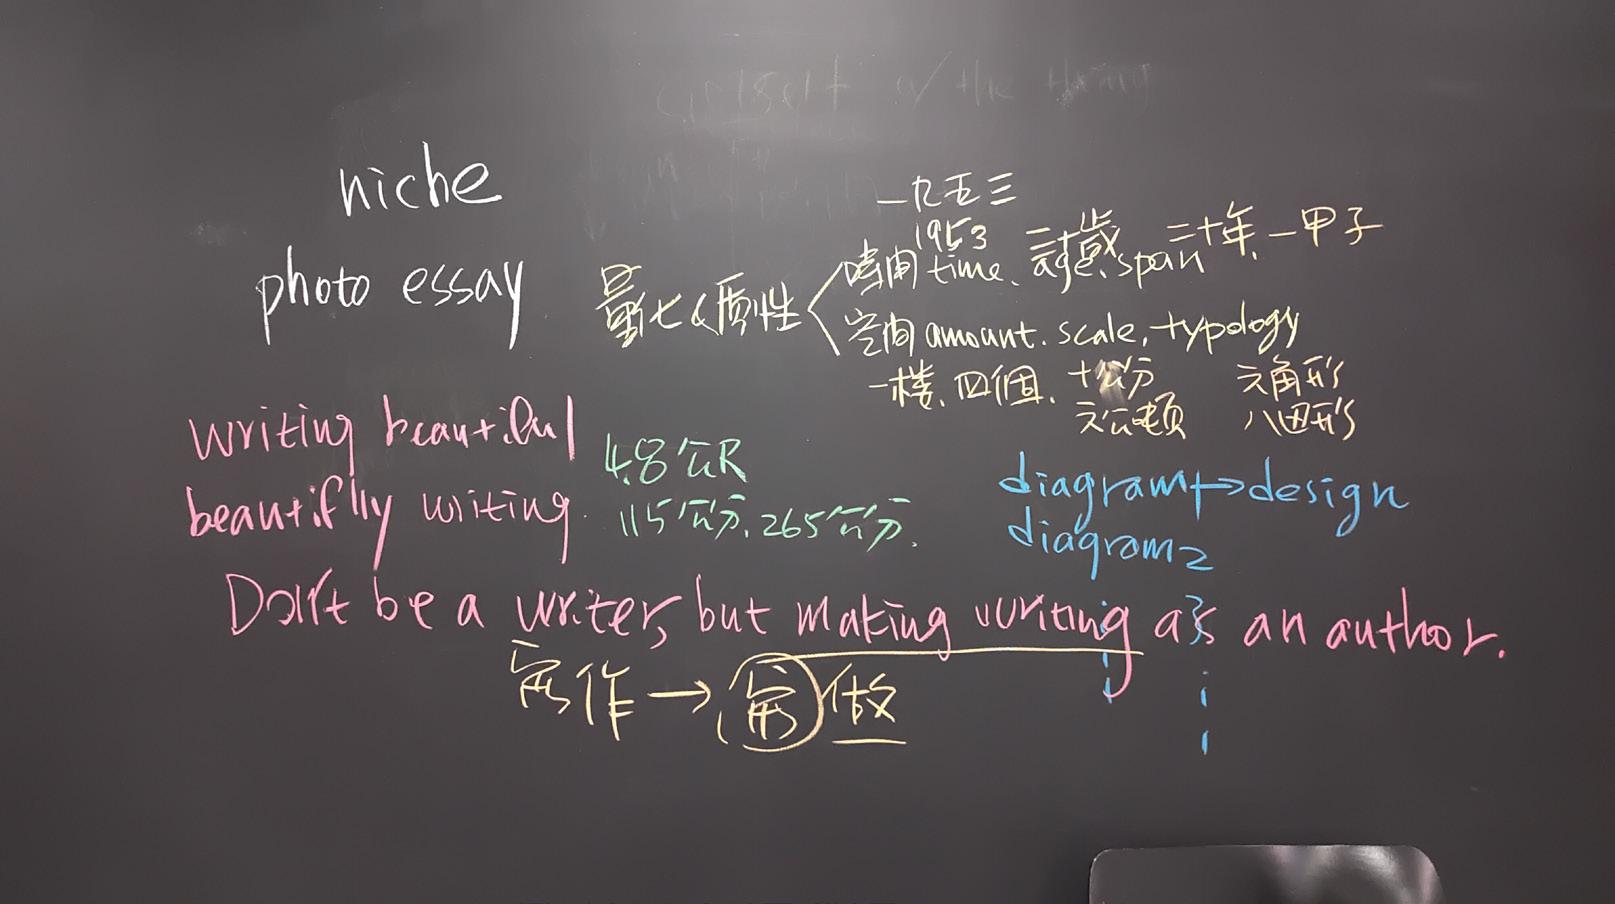 niche
photo essay
一九五三
1953 二十歲 二十年 一甲子
時間 time、age、span
量化&質性
空間 amount. scale, typology
一樓、四個、十公分 六角形
六公噸 八邊形
writing beautiful
beautiflly writing.
4.8公尺
115公分、265公分.
diagram1→design
diagram2
3
Don't be a writer, but making writing as an author.
寫作→寫做